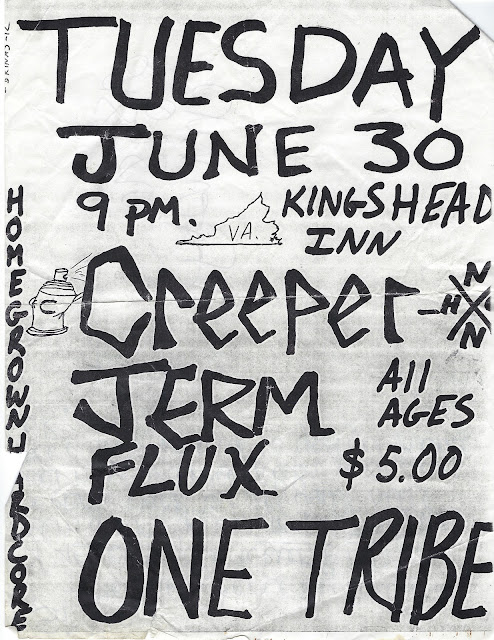 TUESDAY
JUNE 30
9 PM.
VA.
KINGSHEAD
INN
Creeper
JERM
FLUX
All
AGES
$5.00
ONE TRIBE
HOMEGROWN